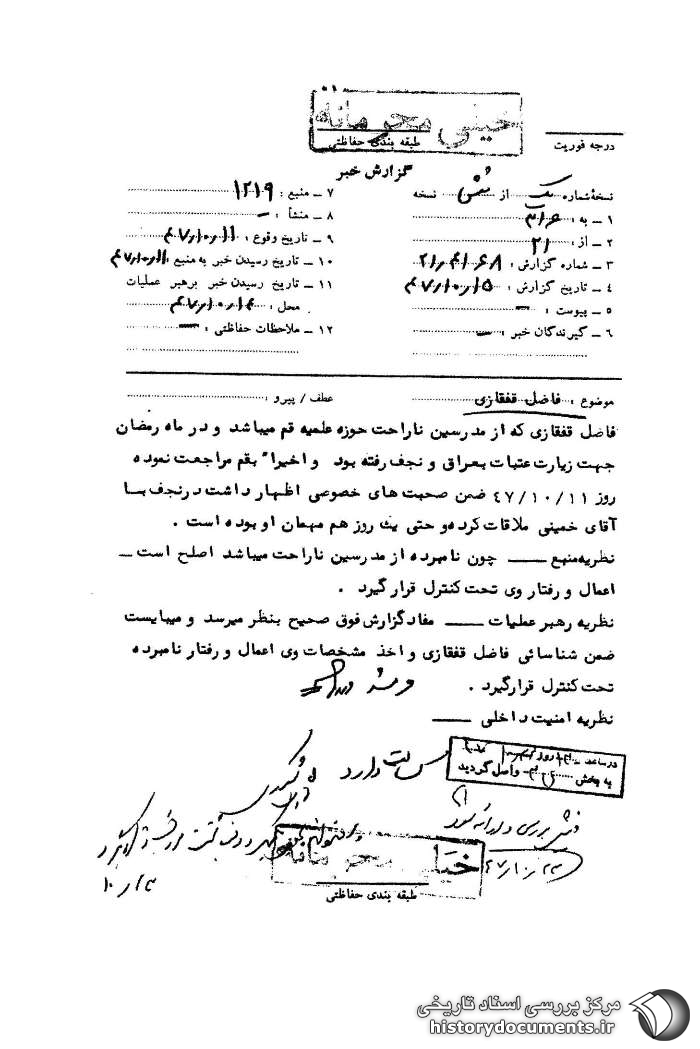 خیلی محرمانه
طبقه بندی حفاظتی
درجه فوریت
گزارش خبر
نسخهٔ شماره یک از شش نسخه
۱ ـ به : ۳۱۶
۲ ـ از : ۲۱
۳ ـ شماره گزارش :
۴ ـ تاریخ گزارش : ۴۷٫۱۰٫۱۵
۵ ـ پیوست : ـ
۶ ـ گیرندگان خبر : ـ
۷ ـ منبع : ۱۲۱۹
۸ ـ منشأ : ـ
۹ ـ تاریخ وقوع : ۴۷٫۱۰٫۱۱
۱۰ ـ تاریخ رسیدن خبر به منبع : ۴۷٫۱۰٫۱۱
۱۱ ـ تاریخ رسیدن خبر برهبر عملیات
محل :
۱۲ ـ ملاحظات حفاظتی : ـ
موضوع : فاضل قفقازی
عطف / پیرو :
فاضل قفقازی که از مدرسین ناراحت حوزه علمیه قم میباشد و در ماه رمضان
جهت زیارت عتبات بعراق و نجف رفته بود و اخیراً بقم مراجعت نموده
روز ۴۷/۱۰/۱۱ ضمن صحبت های خصوصی اظهار داشت درنجف با
آقای خمینی ملاقات کرده و حتی یک روز هم میهمان او بوده است .
نظریه منبع ـــ چون نامبرده از مدرسین ناراحت میباشد اصلح است ـ
اعمال و رفتار وی تحت کنترل قرار گیرد .
نظریه رهبر عملیات ـــ مفاد گزارش فوق صحیح بنظر میرسد و میبایست
ضمن شناسائی فاضل قفقازی و اخذ مشخصات وی اعمال و رفتار نامبرده
تحت کنترل قرار گیرد .
نظریه امنیت داخلی ـــ
در ساعت روز
به بخش واصل گردید
دارد
بررسی و
خیلی محرمانه
طبقه بندی حفاظتی
مرکز بررسی اسناد تاریخی
historydocuments.ir